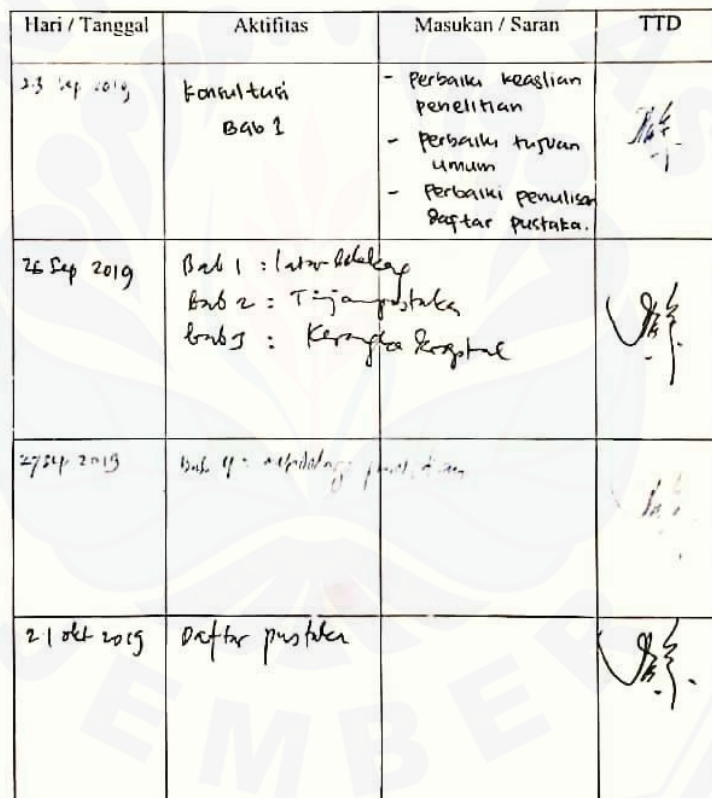 Hari / Tanggal Aktifitas Masukan / Saran TTD
23 Sep 2019 Konsultasi - Perbaiki keaslian
Bab 1 penelitian
- Perbaiki tujuan
umum
- Perbaiki penulisan
Daftar pustaka.
26 Sep 2019 Bab 1 : latar belakang
Bab 2 : Tinjauan pustaka
bab 3 : Kerangka konseptual
27 Sep 2019 Bab 4 : metodologi penelitian
21 okt 2019 Daftar pustaka
JEMBER